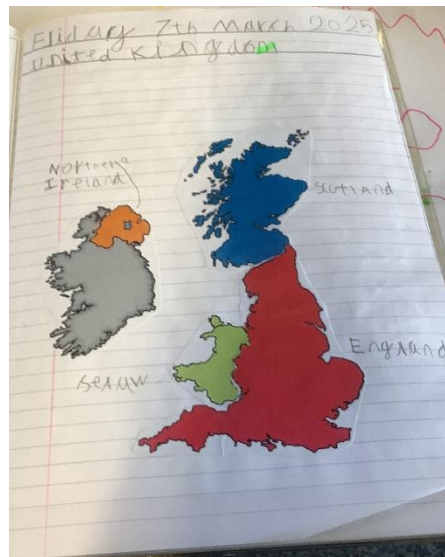 Friday 7th March 2025
united Kingdom
Northern
Ireland
scotland
England
selaw